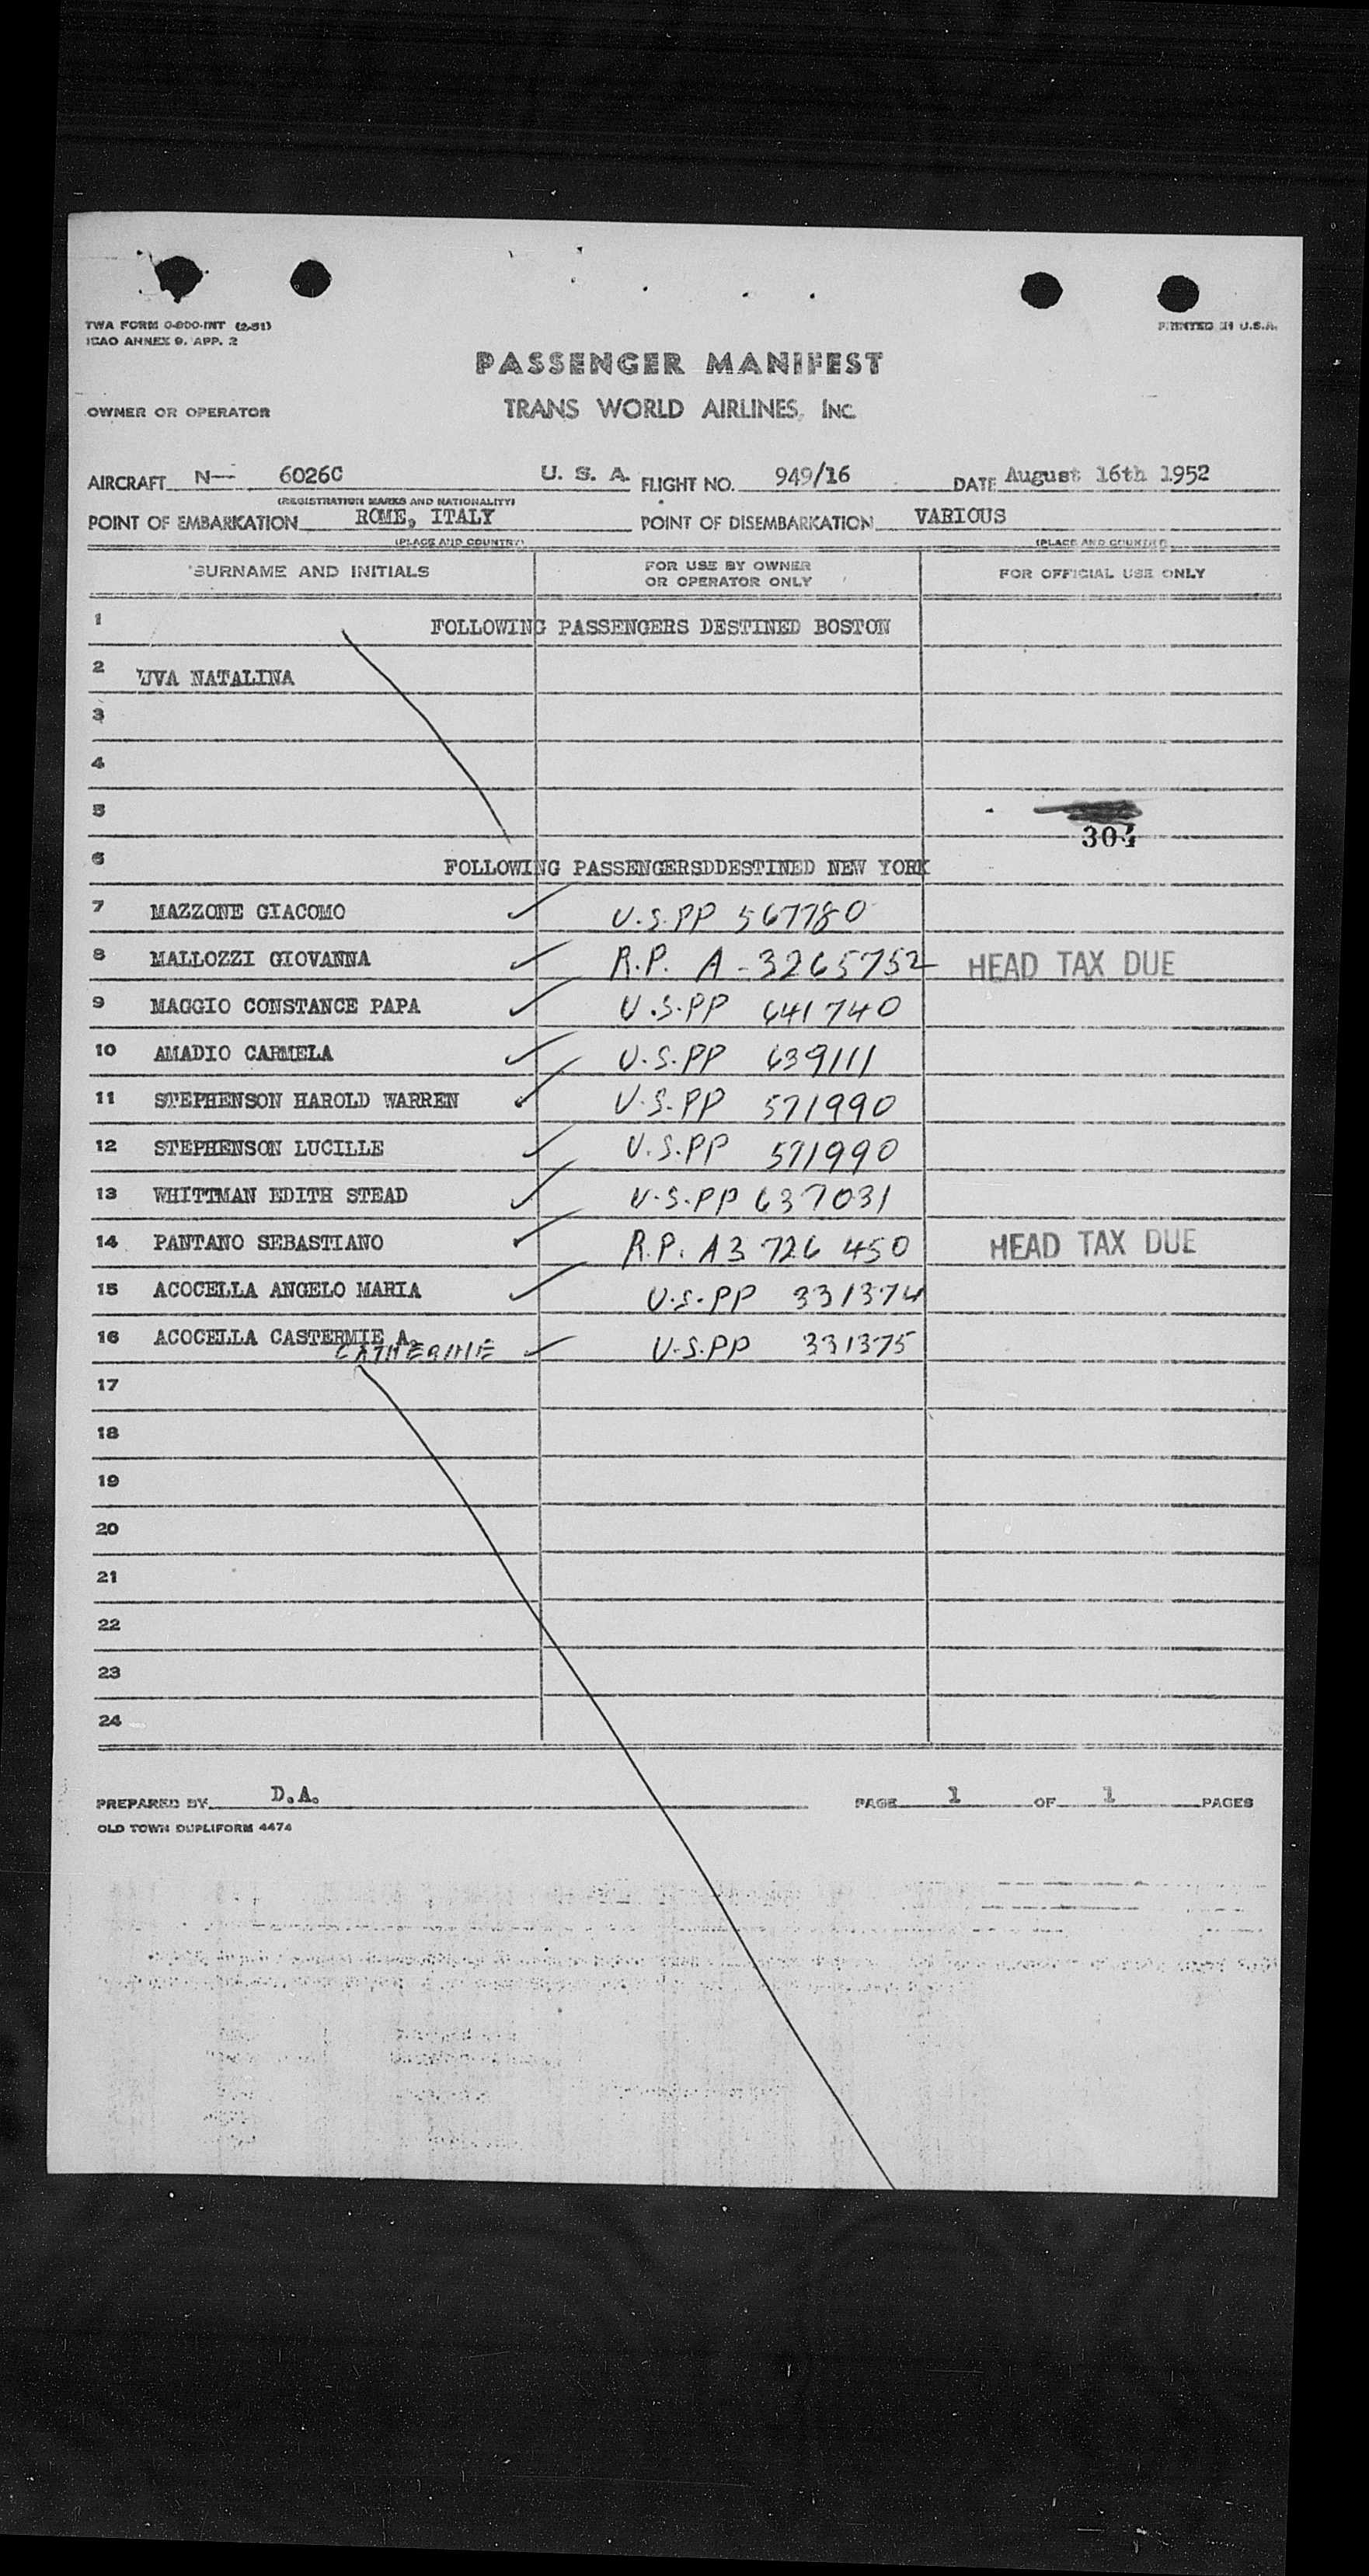 TWA FORM 0-800-INT (2-51)
ICAO ANNEX 9. APP. 2
PRINTED IN U.S.A.
PASSENGER MANIFEST
OWNER OR OPERATOR TRANS WORLD AIRLINES, INC
AIRCRAFT N— 6026C U. S. A. FLIGHT NO. 949/16 DATE August 16th 1952
(REGISTRATION MARKS AND NATIONALITY)
POINT OF EMBARKATION ROME, ITALY POINT OF DISEMBARKATION VARIOUS
(PLACE AND COUNTRY) (PLACE AND COUNTRY)
SURNAME AND INITIALS FOR USE BY OWNER OR OPERATOR ONLY FOR OFFICIAL USE ONLY
1 FOLLOWING PASSENGERS DESTINED BOSTON
2 UVA NATALINA
3
4
5
6 FOLLOWING PASSENGERSDDESTINED NEW YORK
7 MAZZONE GIACOMO ✓ U.S.PP 567780
8 MALLOZZI GIOVANNA ✓ R.P. A-3265752 HEAD TAX DUE
9 MAGGIO CONSTANCE PAPA ✓ U.S.PP 641740
10 AMADIO CARMELA ✓ U.S.PP 639111
11 STEPHENSON HAROLD WARREN ✓ U.S.PP 571990
12 STEPHENSON LUCILLE ✓ U.S.PP 571990
13 WHITTMAN EDITH STEAD ✓ U.S.PP 637031
14 PANTANO SEBASTIANO ✓ R.P. A3 726 450 HEAD TAX DUE
15 ACOCELLA ANGELO MARIA ✓ U.S.PP 331374
16 ACOCELLA CASTERMIE A. ✓ U.S.PP 331375
CATHERINE
17
18
19
20
21
22
23
24
PREPARED BY D.A. PAGE 1 OF 1 PAGES
OLD TOWN DUPLIFORM 4474